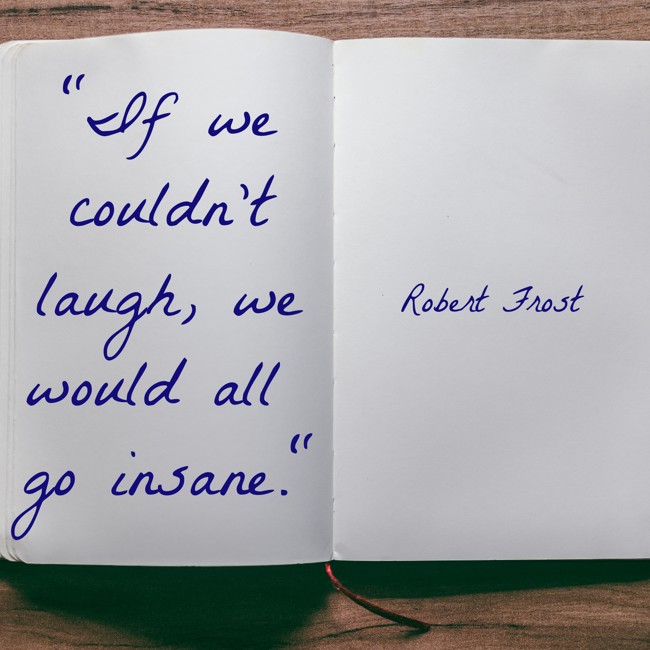 “If we
couldn't
laugh, we
would all
go insane.“
Robert Frost